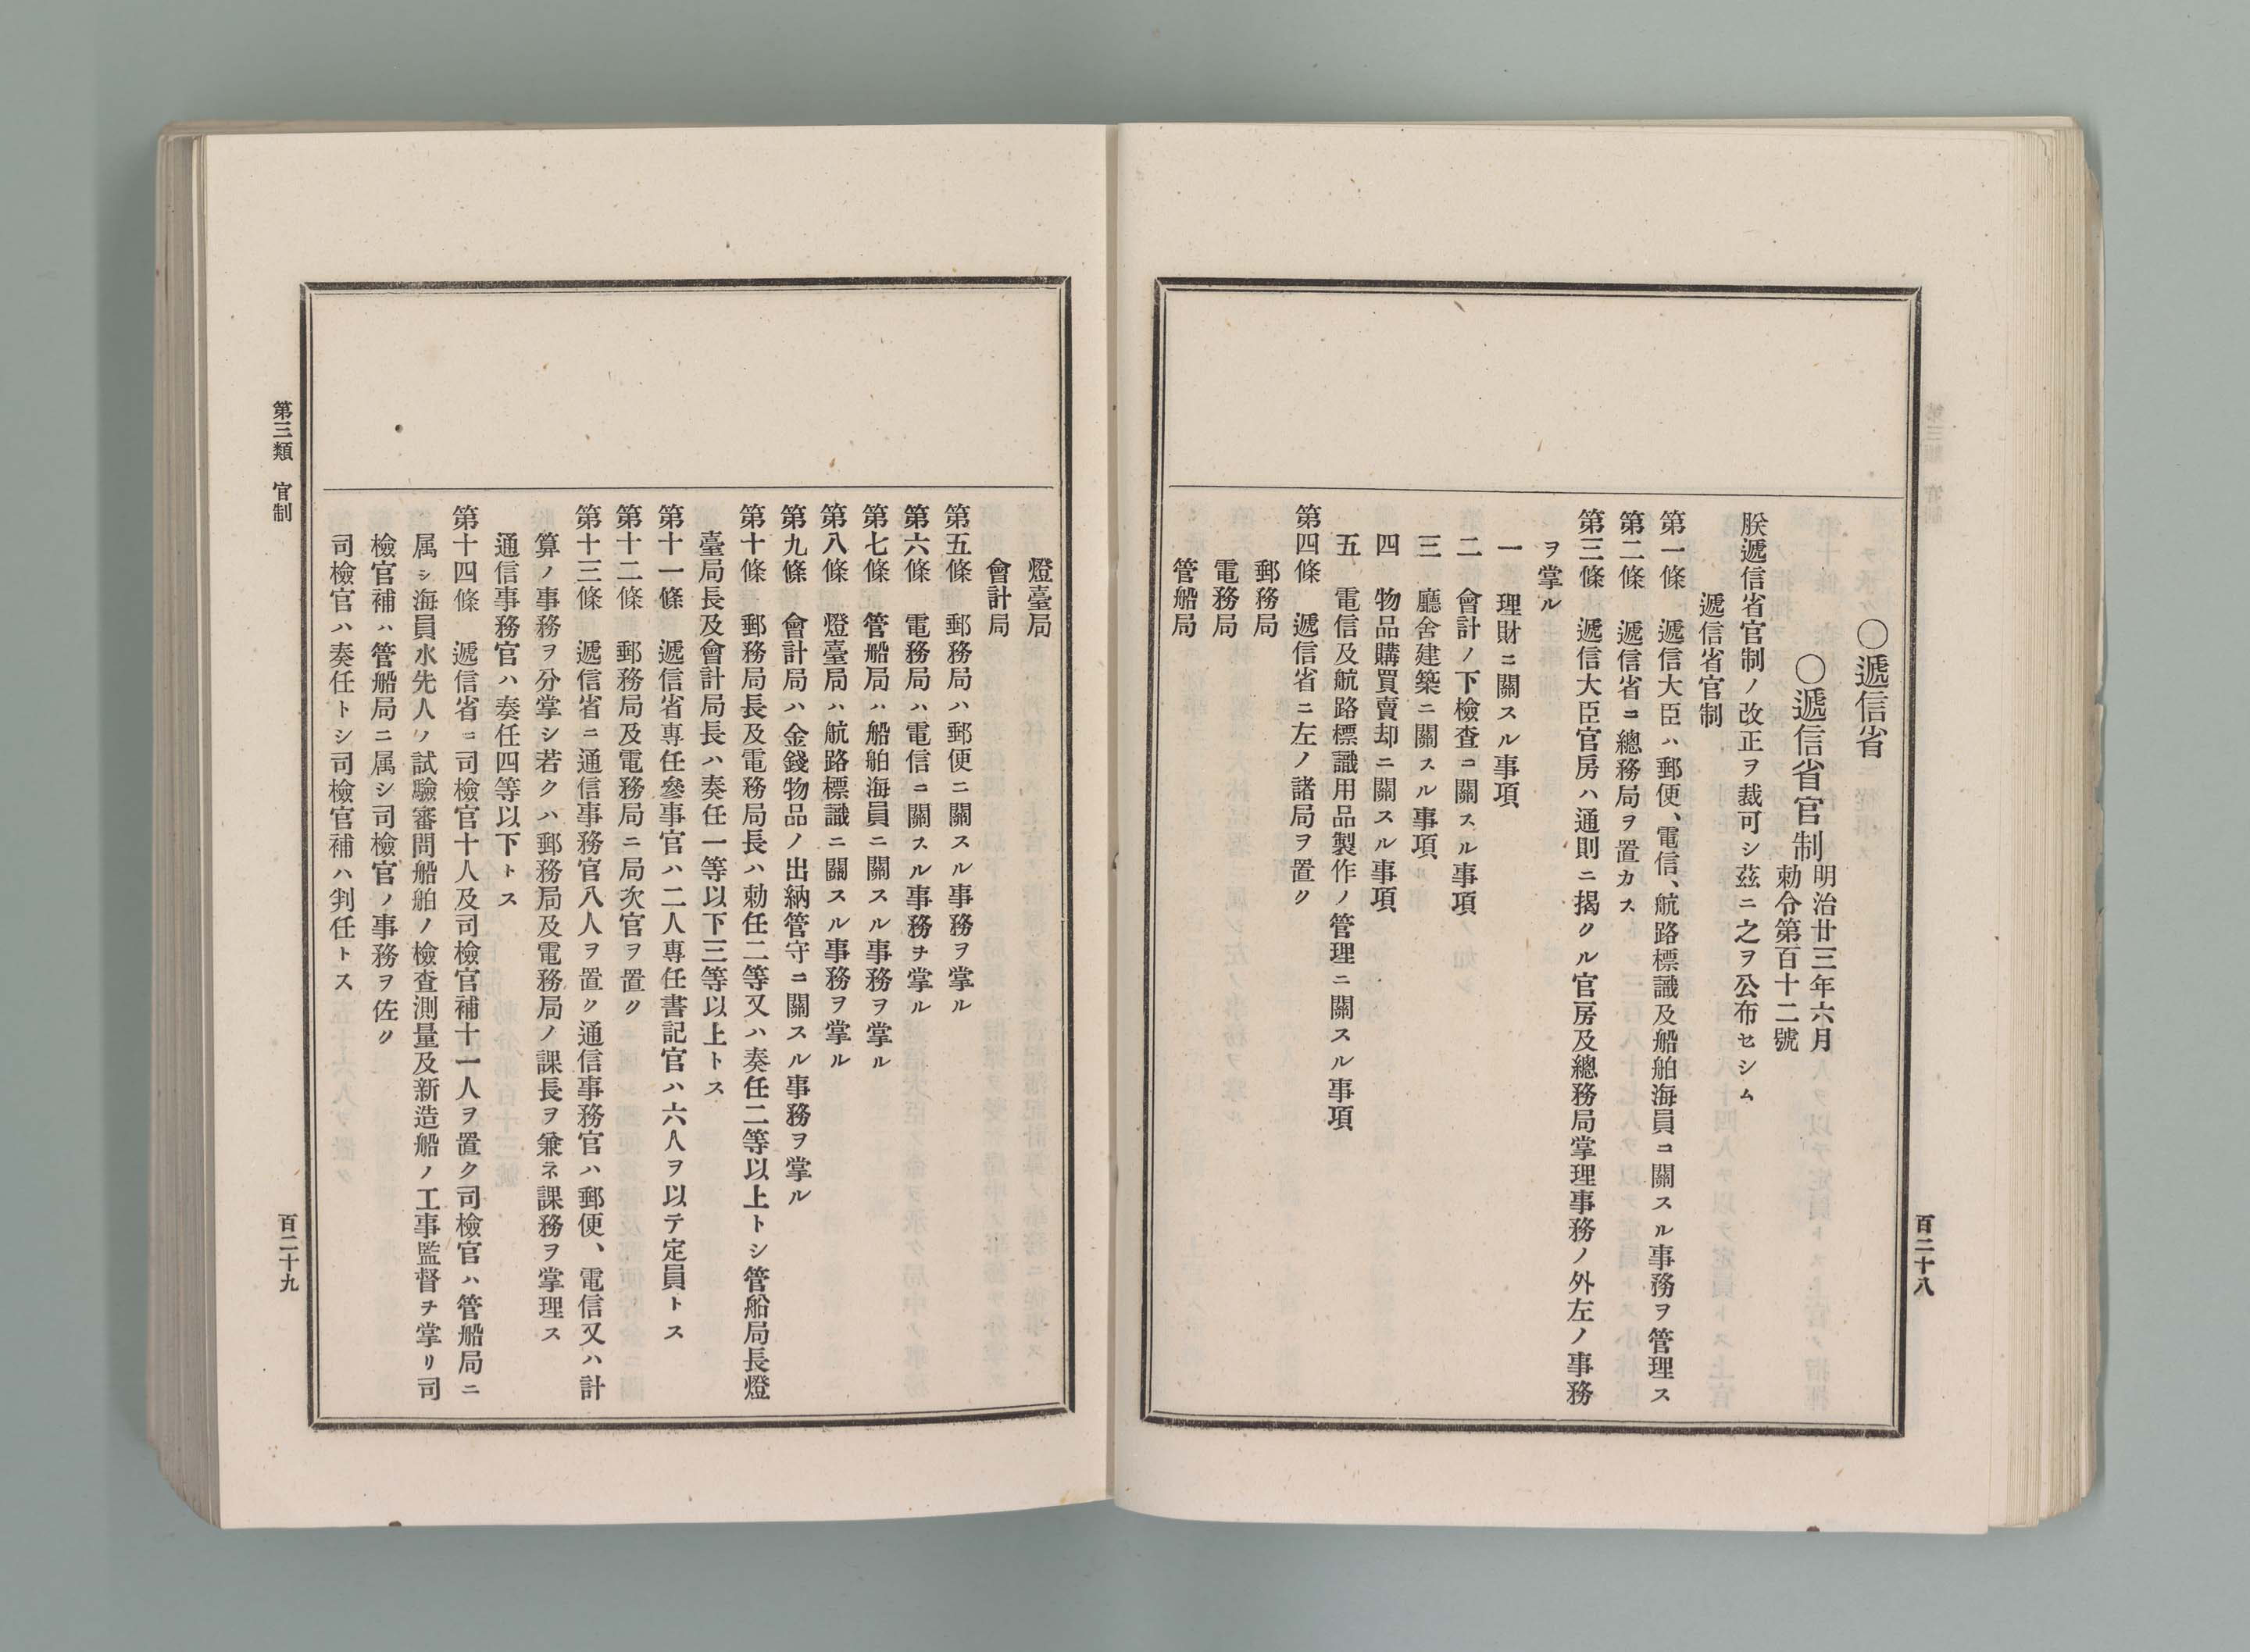 〇遞信省
〇遞信省官制
明治廿三年六月
勅令第百十二號
朕遞信省官制ノ改正ヲ裁可シ茲ニ之ヲ公布セシム
遞信省官制
第一條　遞信大臣ハ郵便、電信、航路標識及船舶海員ニ關スル事務ヲ管理ス
第二條　遞信省ニ總務局ヲ置カス
第三條　遞信大臣官房ハ通則ニ揭クル官房及總務局掌理事務ノ外左ノ事務
ヲ掌ル
一　理財ニ關スル事項
二　會計ノ下檢査ニ關スル事項
三　廳舍建築ニ關スル事項
四　物品購買賣却ニ關スル事項
五　電信及航路標識用品製作ノ管理ニ關スル事項
第四條　遞信省ニ左ノ諸局ヲ置ク
郵務局
電務局
管船局
百二十八
燈臺局
會計局
第五條　郵務局ハ郵便ニ關スル事務ヲ掌ル
第六條　電務局ハ電信ニ關スル事務ヲ掌ル
第七條　管船局ハ船舶海員ニ關スル事務ヲ掌ル
第八條　燈臺局ハ航路標識ニ關スル事務ヲ掌ル
第九條　會計局ハ金錢物品ノ出納管守ニ關スル事務ヲ掌ル
第十條　郵務局長及電務局長ハ勅任二等又ハ奏任二等以上トシ管船局長燈
臺局長及會計局長ハ奏任一等以下三等以上トス
第十一條　遞信省專任參事官ハ二人專任書記官ハ六人ヲ以テ定員トス
第十二條　郵務局及電務局ニ局次官ヲ置ク
第十三條　遞信省ニ通信事務官八人ヲ置ク通信事務官ハ郵便、電信又ハ計
算ノ事務ヲ分掌シ若クハ郵務局及電務局ノ課長ヲ兼ネ課務ヲ掌理ス
通信事務官ハ奏任四等以下トス
第十四條　遞信省ニ司檢官十人及司檢官補十一人ヲ置ク司檢官ハ管船局ニ
属シ海員水先人ノ試驗審問船舶ノ檢査測量及新造船ノ工事監督ヲ掌リ司
檢官補ハ管船局ニ属シ司檢官ノ事務ヲ佐ク
司檢官ハ奏任トシ司檢官補ハ判任トス
第三類　官制
百二十九